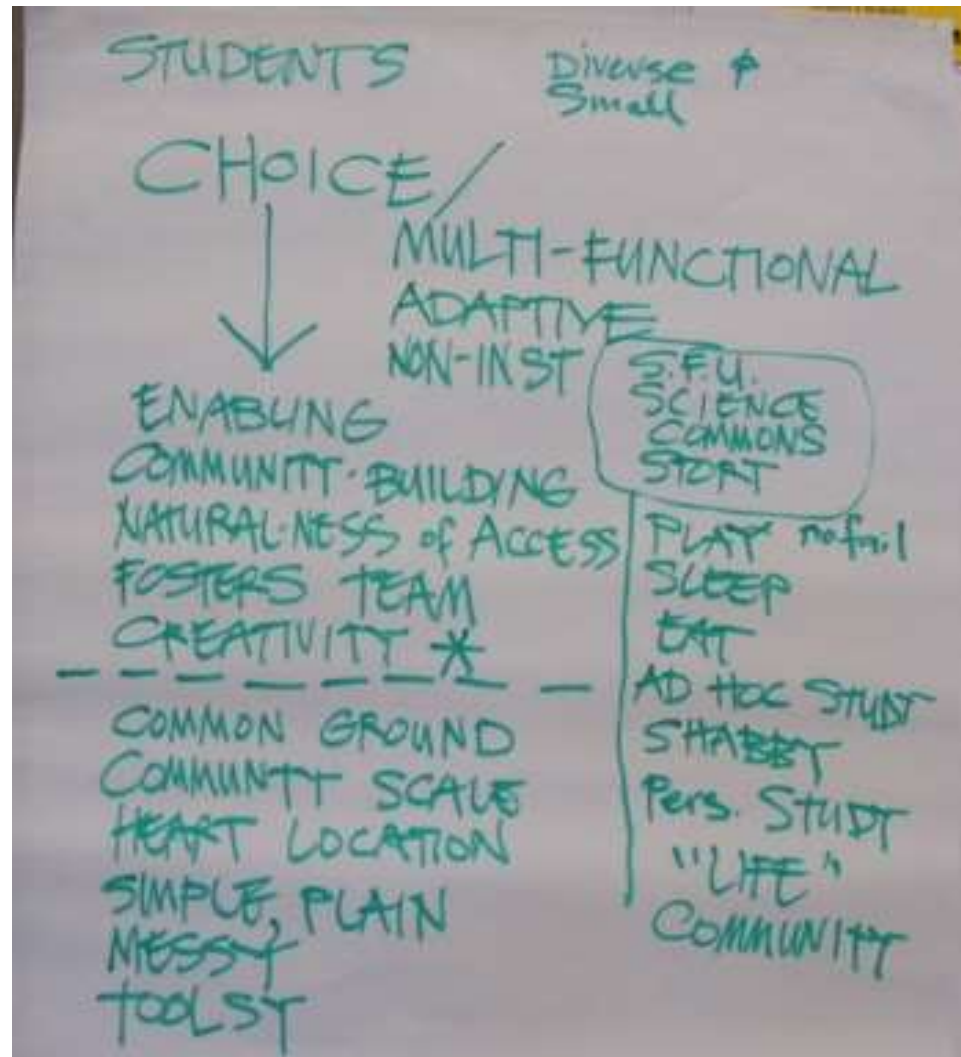 STUDENTS
Diverse &
Small
CHOICE /
MULTI-FUNCTIONAL
ADAPTIVE
NON-INST
ENABLING
COMMUNITY-BUILDING
NATURAL-NESS of ACCESS
FOSTERS TEAM
CREATIVITY *
COMMON GROUND
COMMUNTY SCALE
HEART LOCATION
SIMPLE, PLAIN
MESSY
TOOLSY
S.F.U.
SCIENCE
COMMONS
STORY
PLAY
SLEEP
EAT
AD HOC STUDY
SHABBY
Pers. STUDY
"LIFE"
COMMUNITY